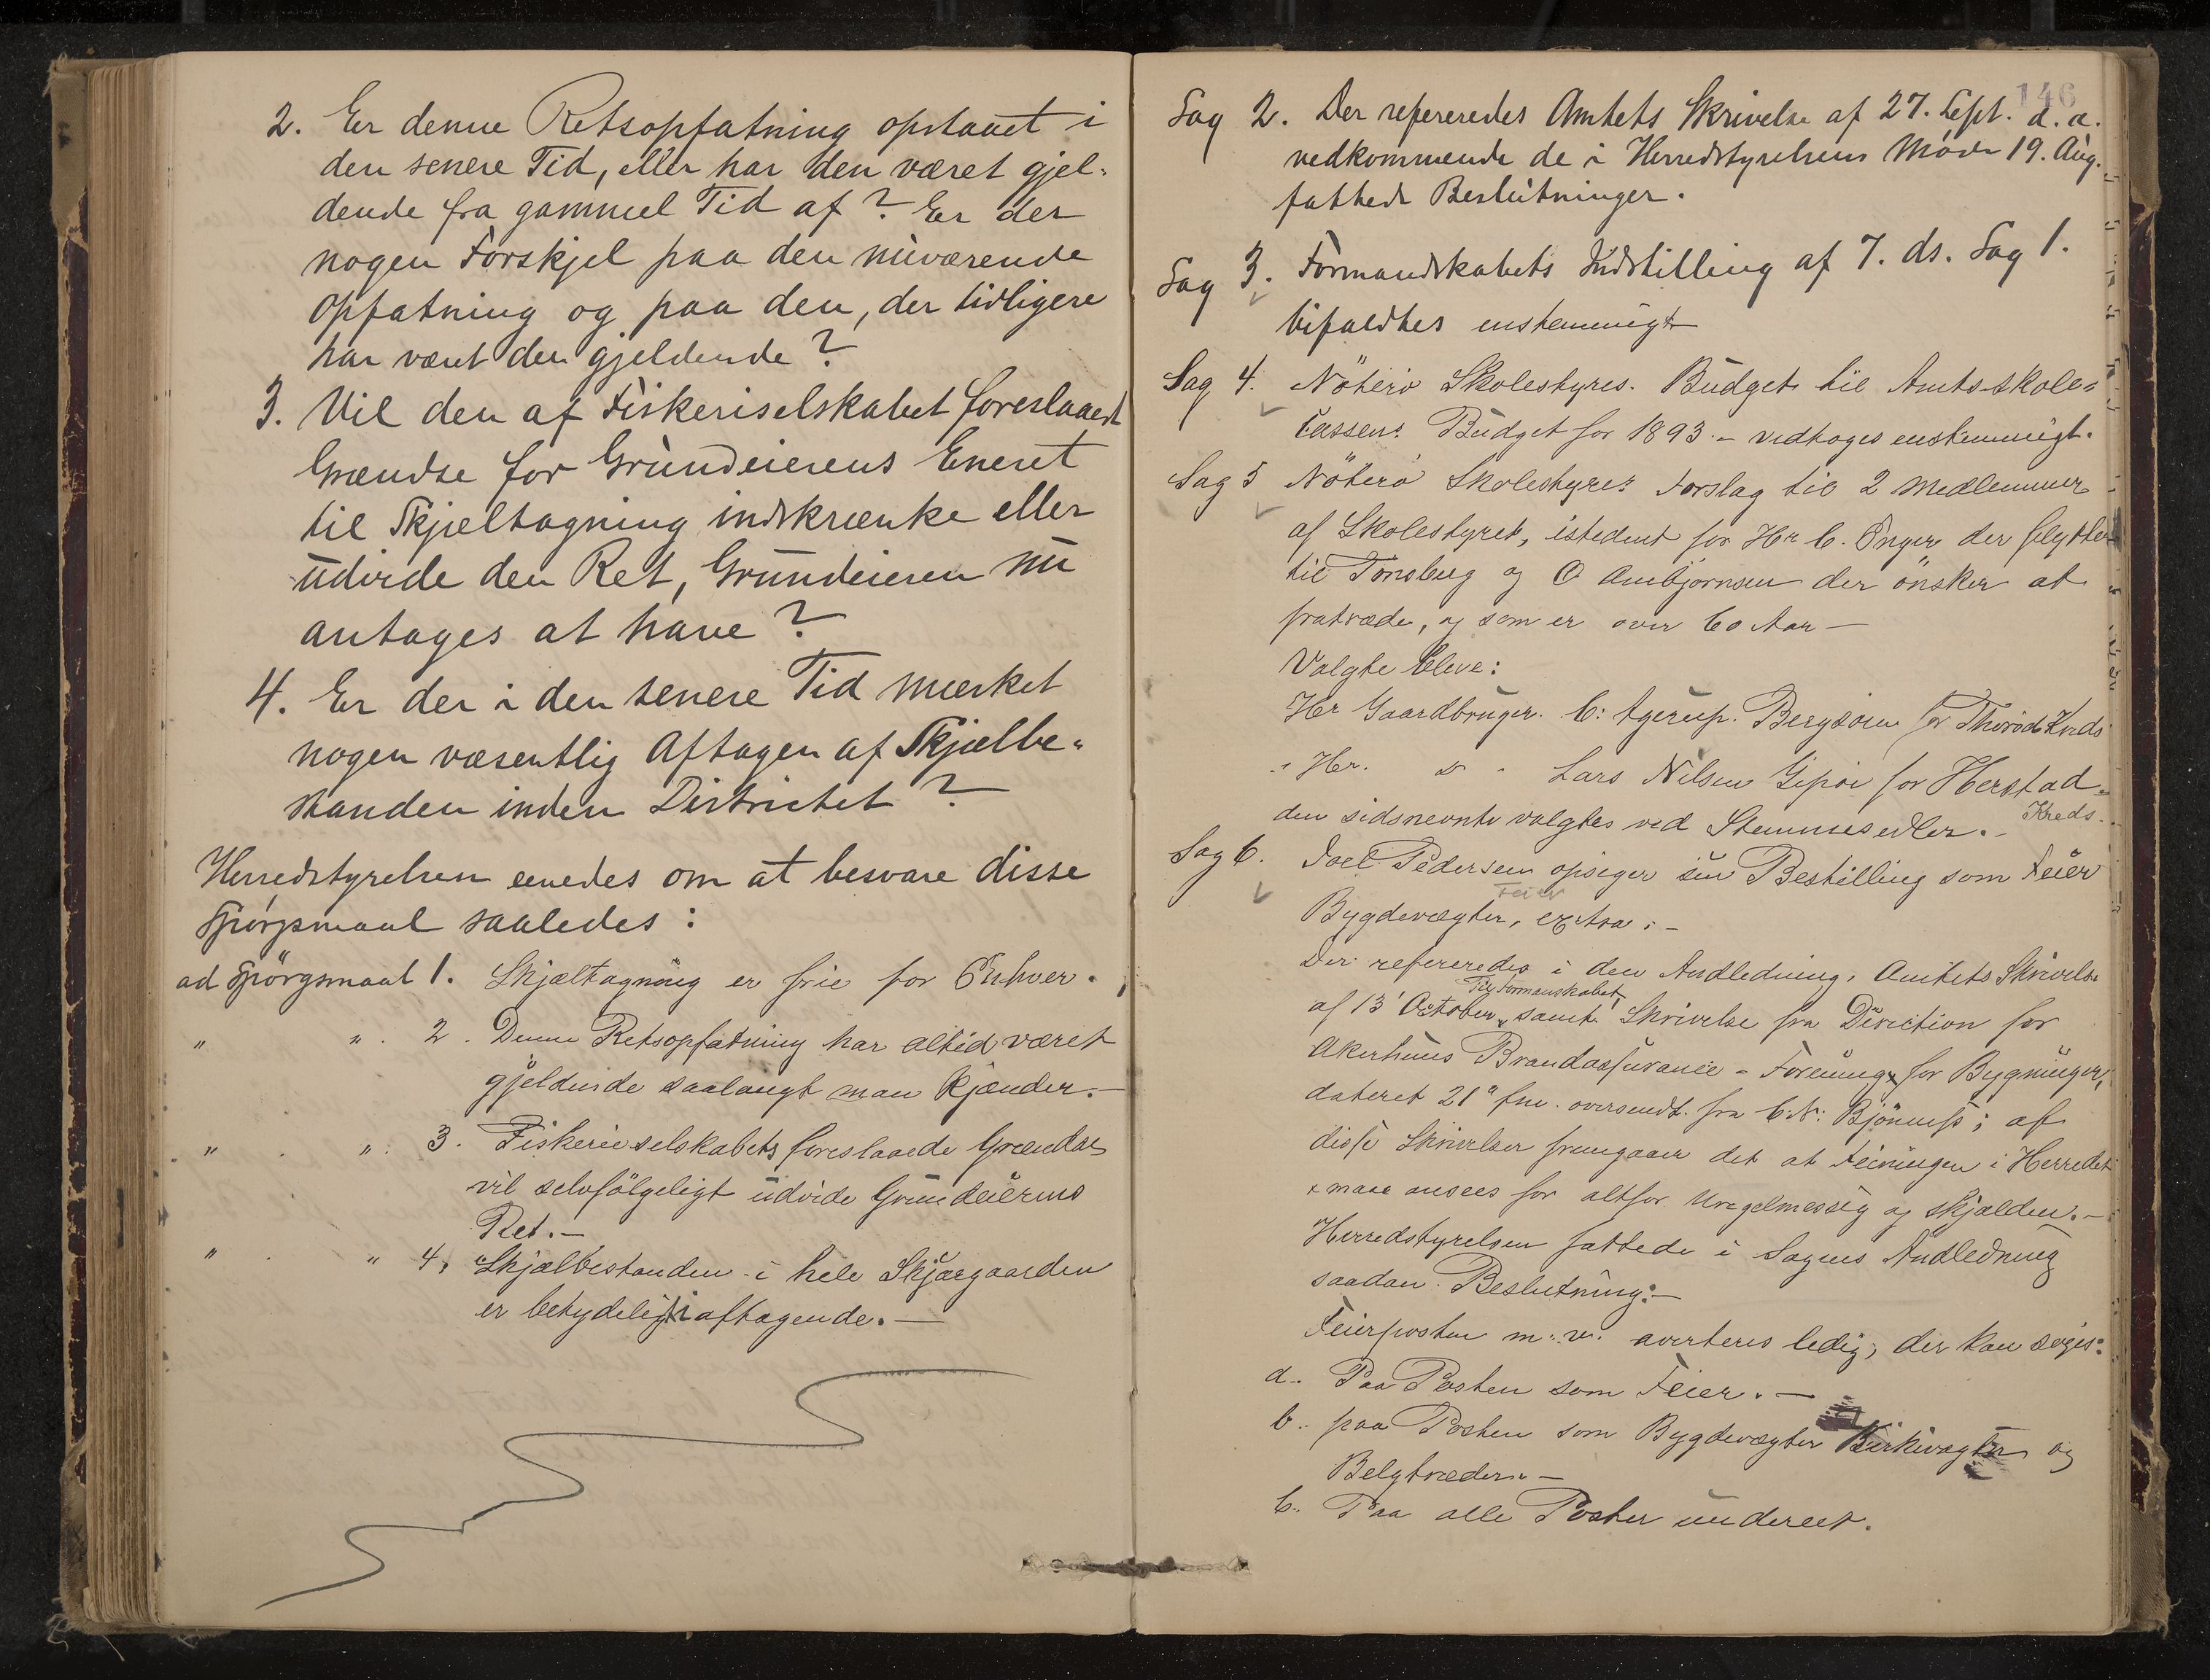 2. Er denne Retsopfatning opstaaet i
den senere Tid, eller har den været gjel-
dende fra gammel Tid af? Er der
nogen Forskjel paa den nuværende
Opfatning og paa den, der tidligere
har været den gjeldende?
3. Vil den af Fiskeriselskabet foreslaaede
Grændse for Grundeierens Eneret
til Skjæltagning indskrænke eller
udvide den Ret, Grundeieren nu
antages at have?
4. Er der i den senere Tid mærket
nogen væsentlig Aftagen af Skjælbe-
standen inden Districtet?
Herredstyrelsen enedes om at besvare disse
Spørgsmaal saaledes:
ad Spørgsmaal 1. Skjæltagning er frie for Enhver.
" " 2. Denne Retsopfatning har altid været
gjeldende saalangt man kjænder.-
" " 3. Fiskerieselskabets foreslaaede Grændse
vil selvfölgeligt udvide Grundeierens
Ret.-
" " 4. Skjælbestanden i hele Skjærgaarden
er betydelig i aftagende.-
146
Sag 2. Der refereredes Amtets Skrivelse af 27. Sept. d. a.
vedkommende de i Herredstyrelsens Møde 19. Aug.
fattede Beslutninger.
Sag 3. Formandskabets Indstilling af 7. ds. Sag 1.
bifaldtes enstemmigt
Sag 4. Nöterö Skolestyres Budget til Amtsskole-
cassens Budget for 1893 - vedtoges enstemmigt.
Sag 5 Nöterö Skolestyres Forslag til 2 Medlemmer
af Skolestyret, istedent for Hr C. Unger der flytter
til Tönsberg og O Ambjørnsen der önsker at
fratræde, og som er over 60 Aar -
Valgte bleve:
Hr Gaardbruger C. Agerup. Bergsoen for Thorød Kreds
" Hr. do Lars Nilsen Gipøe for Herstad
Kreds.
den sidsnevnte valgtes ved Stemmesedler.-
Sag 6. Joel Pedersen opsiger sin Bestilling som Feier
Feier
Bygdevægter, extra.-
Der refereredes i den Andledning, Amtets Skrivelse
Til Formanskabet
af 13 October samt Skrivelse fra Direction for
Akerhuus Brandassurance-Forening for Bygninger,
dateret 21 fm. oversendt fra C. N. Bjönness; af
disse Skrivelser fremgaaer det at Feiningen i Herredet
maae ansees for altfor uregelmessig og skjælden.-
Herredstyrelsen fattede i Sagens Andledning
saadan Beslutning:-
Feierposten m. v. averteres ledig, der kan søges:
a. Paa Posten som Feier.-
b. paa Posten som Bygdevægter Kirkevægter og
Belgtræder.-
c. Paa alle Poster underet.